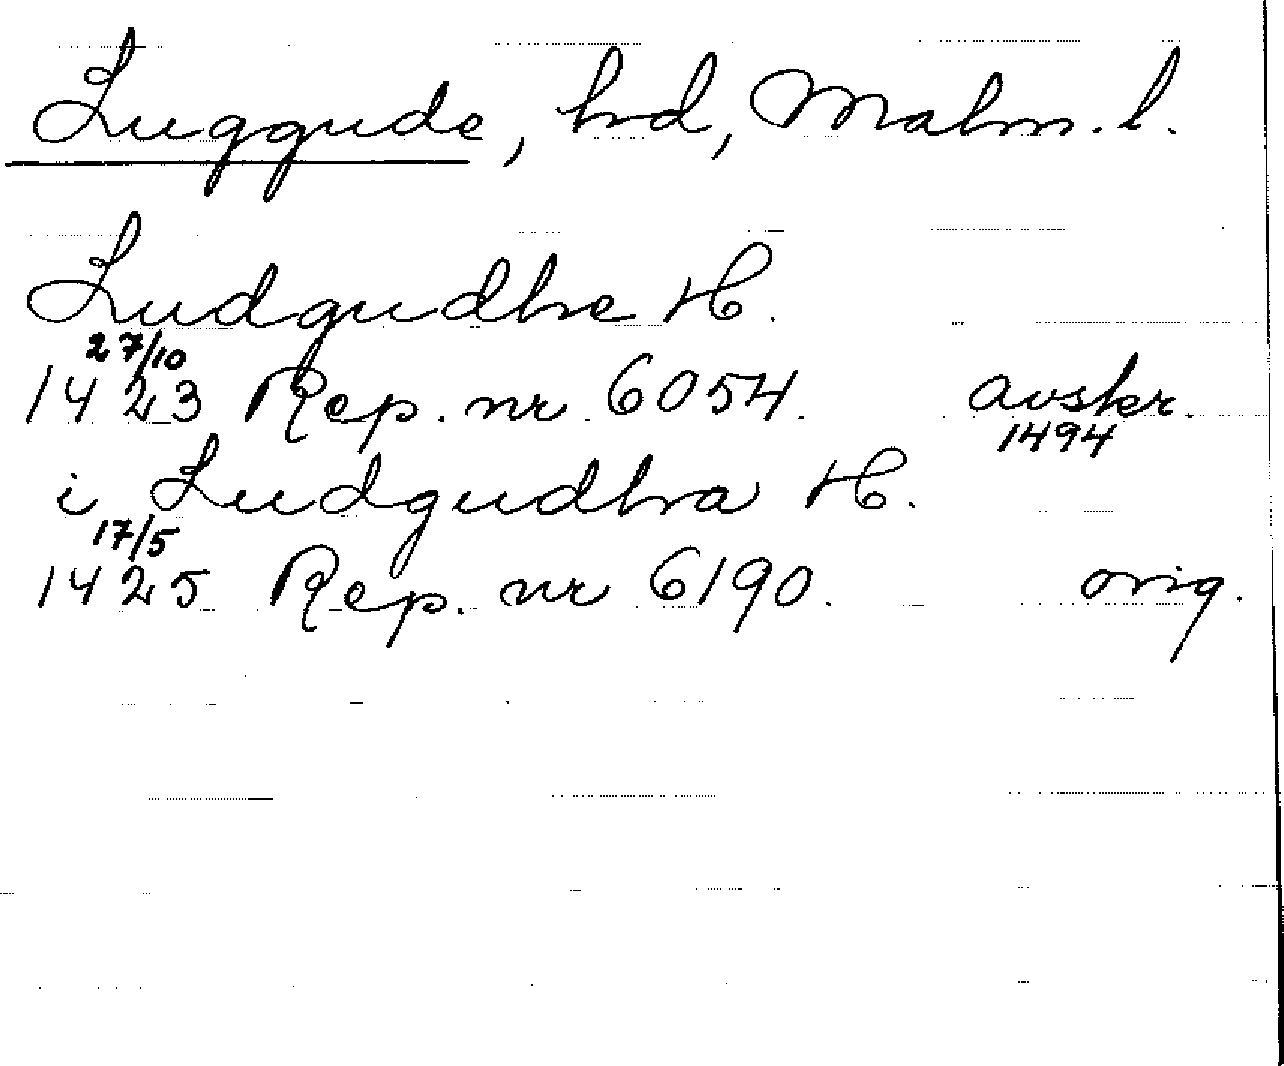 Luggude, hd, Malm. l.
Ludgudhe H.
27/10
1423 Rep. nr 6054. avskr.
1494
i Ludgudha H.
17/5
1425 Rep. nr 6190. orig.